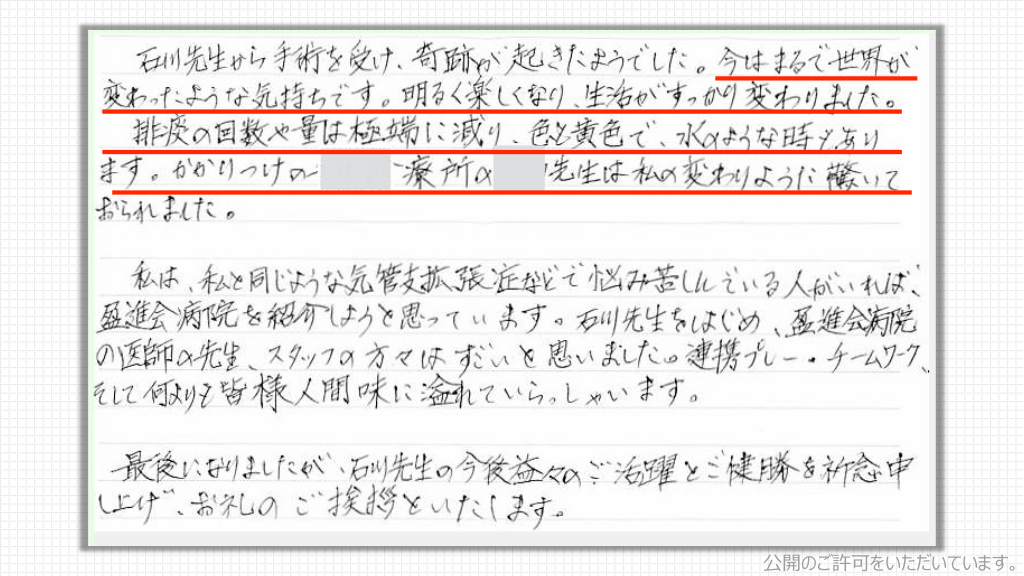 石川先生から手術を受け、奇跡が起きたようでした。今はまるで世界が
変わったような気持ちです。明るく楽しくなり、生活がすっかり変わりました。
排痰の回数や量は極端に減り、色も黄色で、水のような時もあり
ます。かかりつけの 療所の 先生は私の変わりように驚いて
おられました。
私は、私と同じような気管支拡張症などで悩み苦しんでいる人がいれば、
盈進会病院を紹介しようと思っています。石川先生をはじめ、盈進会病院
の医師の先生、スタッフの方々はすごいと思いました。連携プレー・チームワーク、
そして何よりも皆様人間味に溢れていらっしゃいます。
最後になりましたが、石川先生の今後益々のご活躍とご健勝を祈念申
し上げ、お礼のご挨拶といたします。
公開のご許可をいただいています。